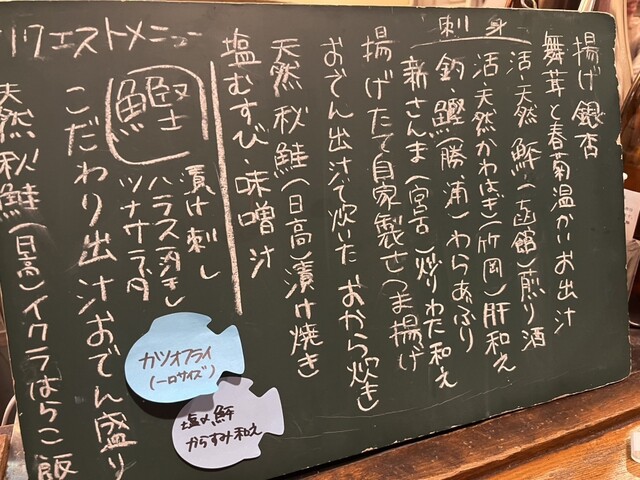 揚げ銀杏
舞茸と春菊温かいお出汁
刺身
活・天然鮃(函館)煎り酒
活・天然かわはぎ(竹岡)肝和え
釣・鰹(勝浦)わらあぶり
新さんま(宮古)炒りわた和え
揚げたて自家製さつま揚げ
おでん出汁で炊いたおから炊き
天然秋鮭(日高)漬け焼き
塩むすび・味噌汁
リクエストメニュー
鰹
漬け刺し
ハラス汐煮し
ツナサラダ
こだわり出汁おでん盛り
天然秋鮭(日高)イクラはらこ飯
カツオフライ
(一口サイズ)
塩〆鮃
からすみ和え